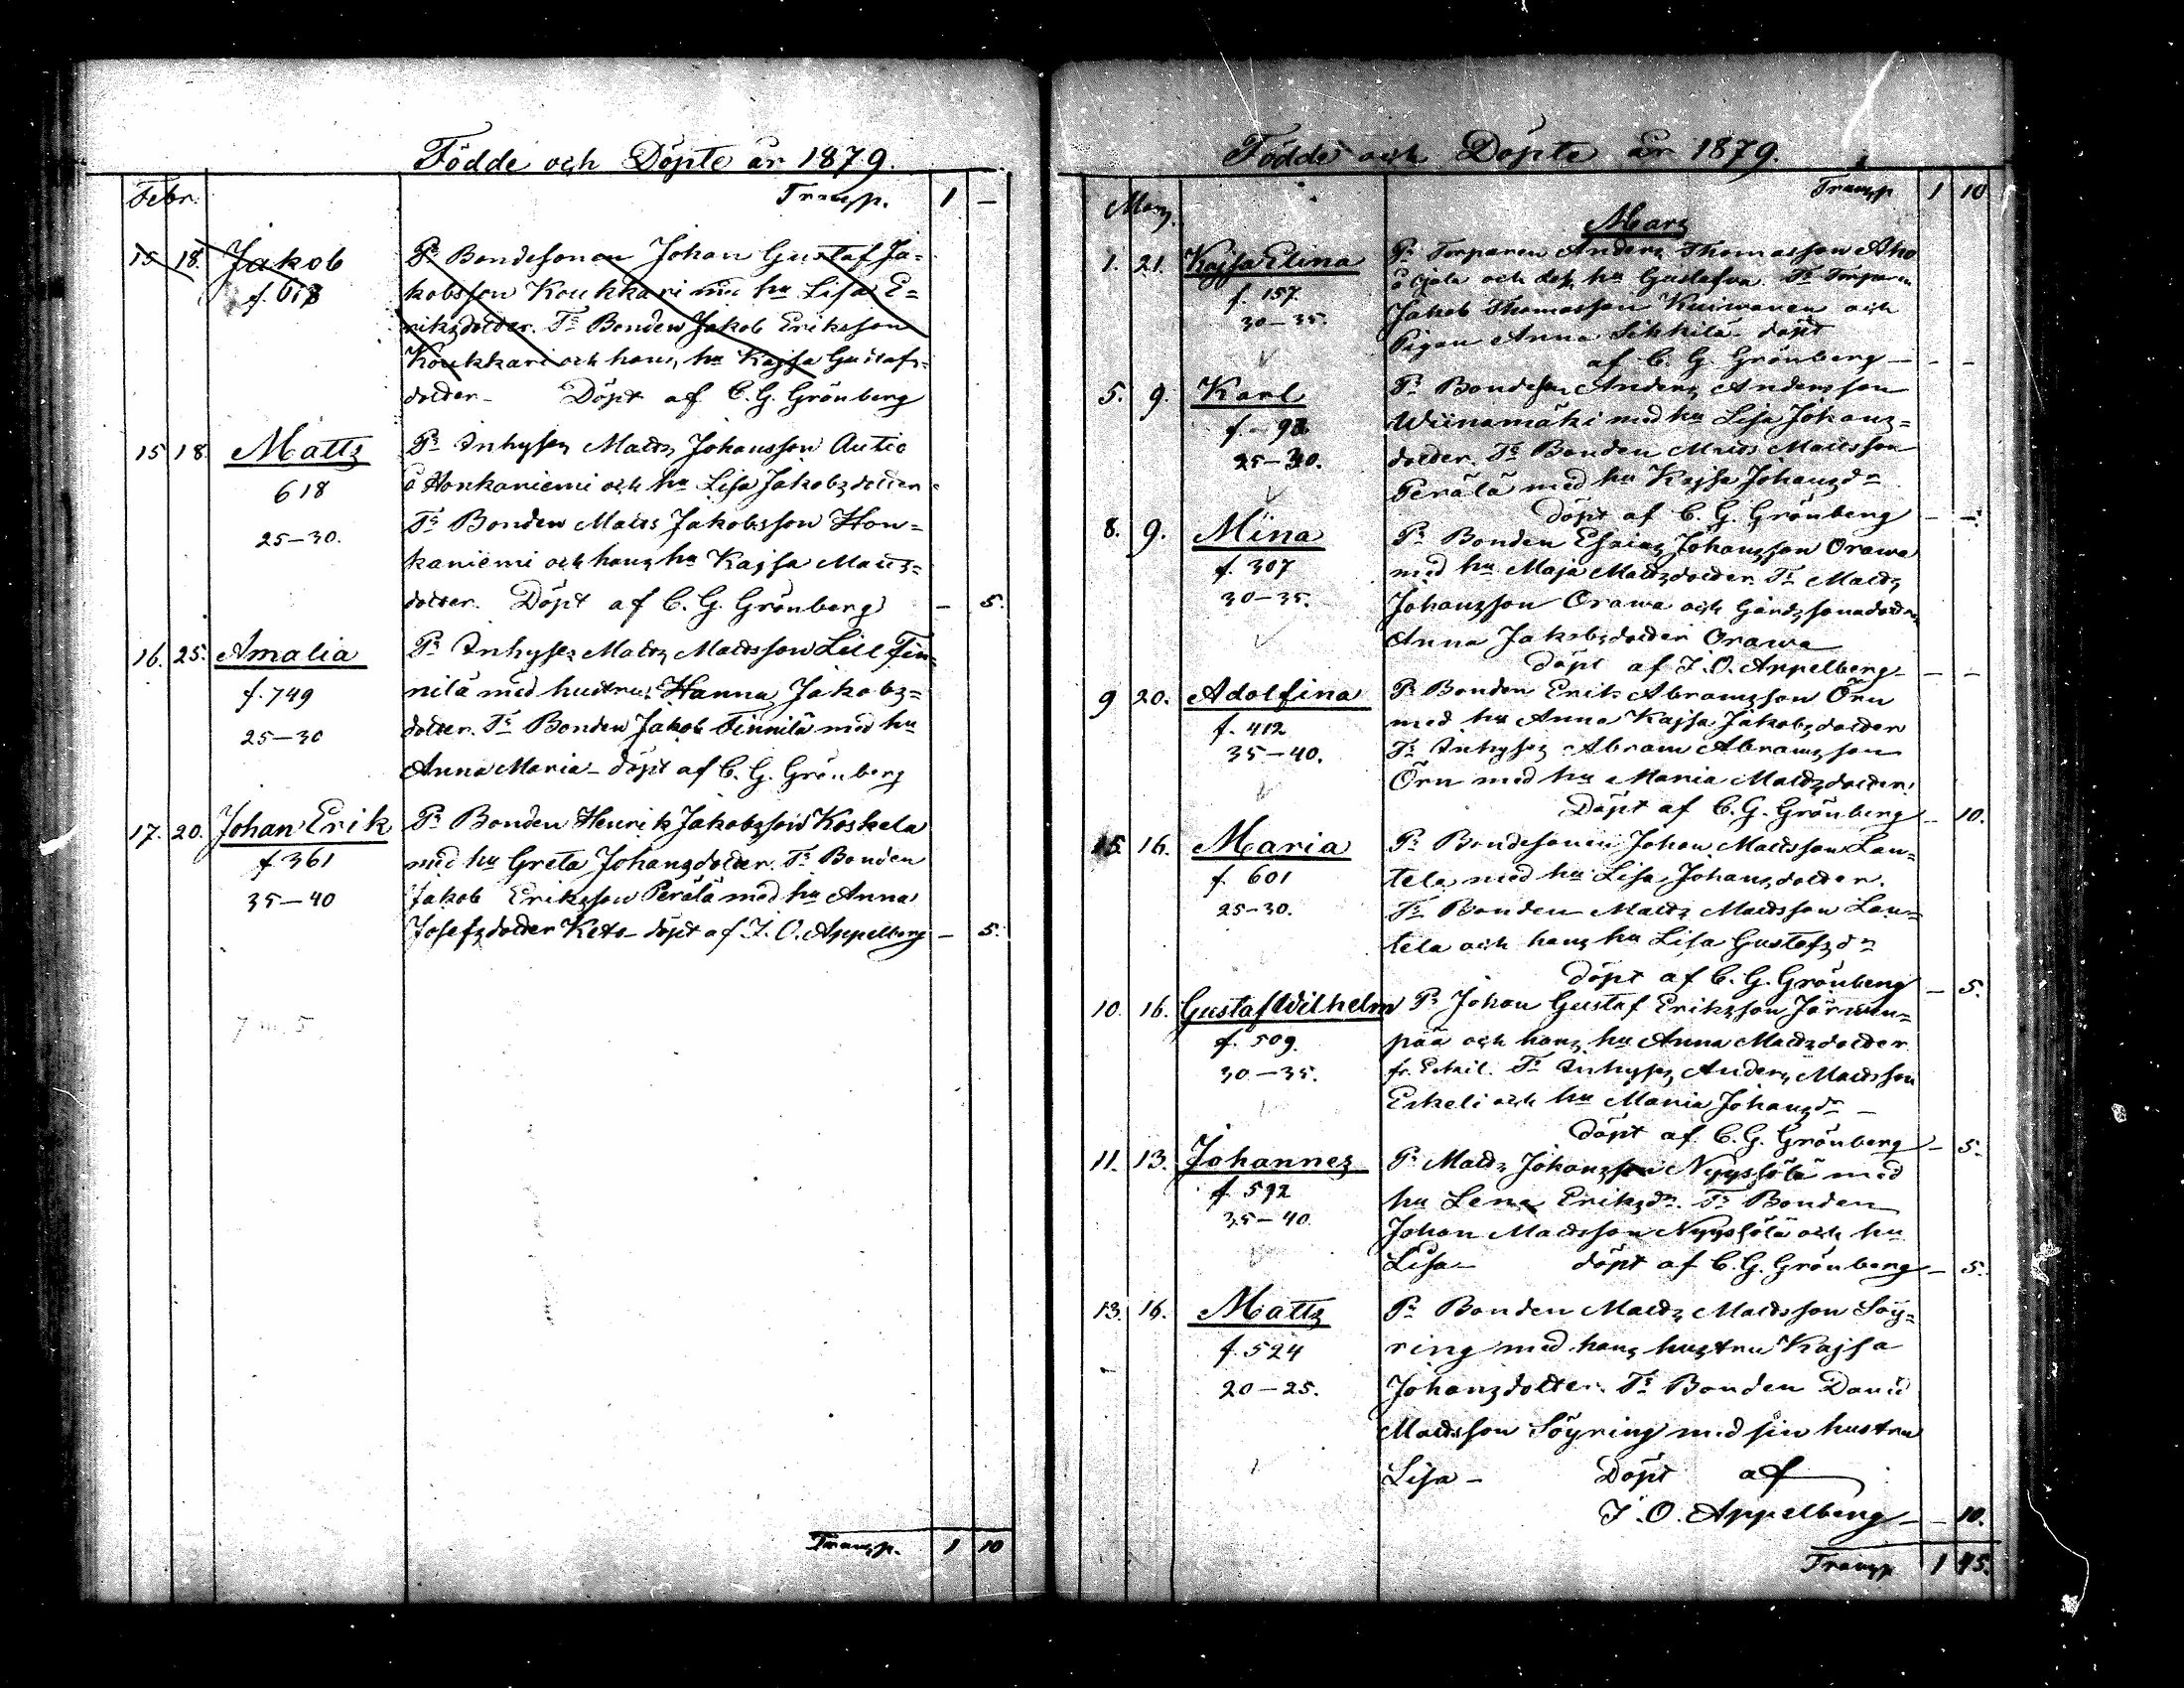 Födde och Döpte år 1879.
Febr. Transp. 1 —
15 18. Jakob Pr Bondesonen Johan Gustaf Ja=
f. 618 kobsson Koukkari med hu Lisa E=
riksdotter. Tr Bonden Jakob Eriksson
Koukkari och hans hu Kajsa Gustafs=
dotter — Döpt af C. G. Grönberg
15 18 Matts Pr Inhyses Matts Johansson Autio
618 å Honkaniemi och hu Lisa Jakobsdotter
25—30. Tr Bonden Matts Jakobsson Hon=
kaniemi och hans hu Kajsa Matts=
dotter. Döpt af C. G. Grönberg — 5.
16. 25. Amalia Pr Inhyses Matts Mattsson Lill Fin=
f. 749 nilä med hustru Hanna Jakobs=
25—30 dotter. Tr Bonden Jakob Finnilä med hu
Anna Maria — döpt af C. G. Grönberg
17. 20. Johan Erik Pr Bonden Henrik Jakobsson Koskela
f 361 med hu Greta Johansdotter. Tr Bonden
35—40 Jakob Eriksson Perälä med hu Anna
Josefsdotter Keto — döpt af J. O. Appelberg — 5.
7 m. 5.
Transp. 1 10
Födde och Döpte år 1879.
Mars. Transp 1 10
Mars
1. 21. Kajsa Elina Pr Torparen Anders Thomasson Aho
f. 157. å och dess hu Gustafva. Tr Torparen
30—35. Jakob Thomasson Kuiwanen och
Pigan Anna Sikkilä döpt
af C. G. Grönberg — — —
5. 9. Karl Pr Bondeson Anders Andersson
f. 93 Wiinamäki med hu Lisa Johans=
25—30. dotter. Tr Bonden Matts Mattsson
Perälä med hu Kajsa Johansdr
döpt af C. G. Grönberg — —
8. 9. Mina Pr Bonden Esaias Johansson Orawa
f. 307 med hu Maja Mattsdotter. Tr Matts
30—35. Johansson Orawa och Gårdssonadotter
Anna Jakobsdotter Orawa
döpt af J. O. Appelberg — — —
9 20. Adolfina Pr Bonden Erik Abramsson Örn
f. 412 med hu Anna Kajsa Jakobsdotter
35—40. Tr Inhyses Abram Abramsson
Örn med hu Maria Mattsdotter.
Döpt af C. G. Grönberg — 10.
15. 16. Maria Pr Bondesonen Johan Mattsson Lan=
f. 601 tela med hu Lisa Johansdotter.
25—30. Tr Bonden Matts Mattsson Lan=
tela och hans hu Lisa Gustafsdr
döpt af C. G. Grönberg — 5.
10. 16. Gustaf Wilhelm Pr Johan Gustaf Eriksson Järwen=
f. 509. pää och hans hu Anna Mattsdotter
30—35. fr. Eskil. Tr Inhyses Anders Mattsson
Eskeli och hu Maria Johansdr —
döpt af C. G. Grönberg — 5.
11. 13. Johannes Pr Matts Johansson Nyyssölä med
f. 592 hu Lena Eriksdr. Tr Bonden
35—40. Johan Mattsson Nyyssölä och hu
Lisa — döpt af C. G. Grönberg — 5.
13. 16. Matts Pr Bonden Matts Mattsson Söy=
f. 524 ring med hans hustru Kajsa
20—25. Johansdotter. Tr Bonden David
Mattsson Söyring med sin hustru
Lisa — Döpt af
J. O. Appelberg — — 10.
Transp 1 45.